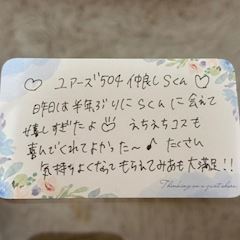 ♡ ユアーズ504 仲良しSくん ♡
昨日は半年ぶりにSくんに会えて
嬉しすぎたよ♡ えちえちコスも
喜んでくれてよかった〜♪ たくさん
気持ちよくなってもらえてみあも大満足!!
Thinking on a quiet shore.